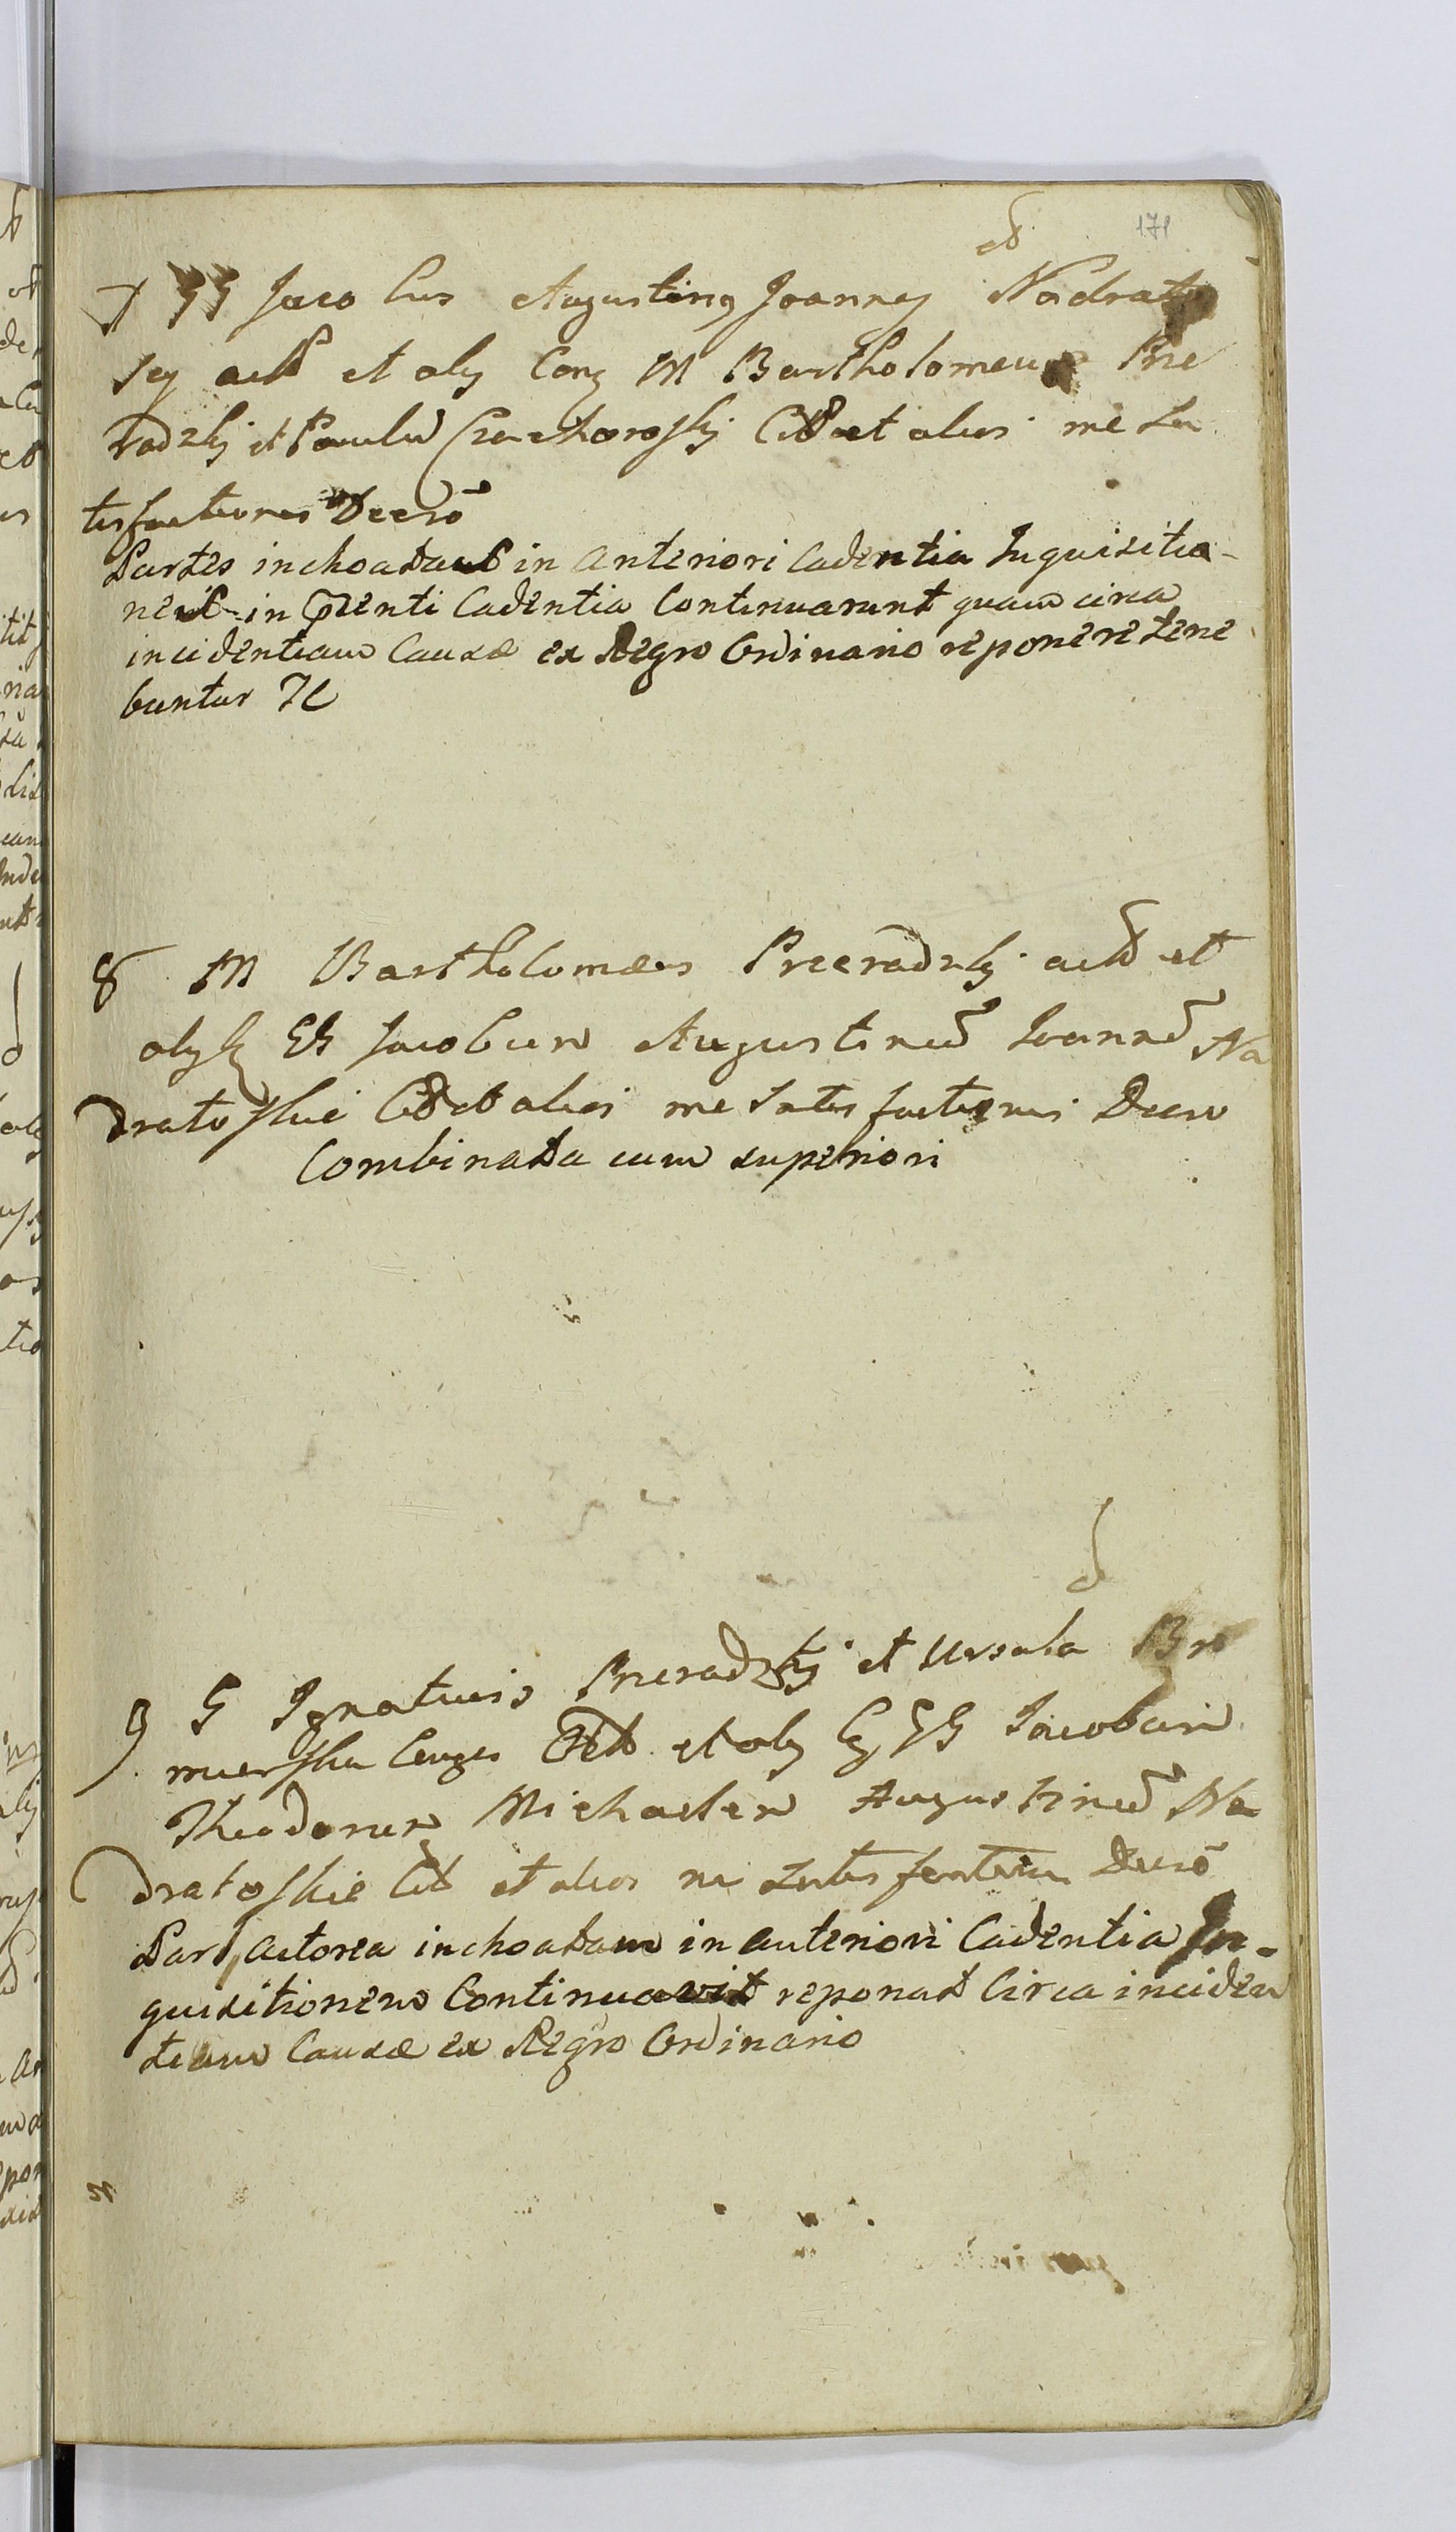 171
7 GG Jacobus Augusting Joanney Nadrato
scy act et alij Conz M Bartholomeum Prie
radzkj et Paulũ Czachoroskj Citt et alios rne Sa
tisfactionis Decrō
Partes inchoatam in anteriori Cadentia Inquisitio-
nem in pr̃senti Cadentia Continuarunt quam circa
incidentiam Causæ ex Regro Ordinario reponere tene
buntur
8 M Bartholomæus Preeradzkj act et
alij Cz GG Jacobum Augustinũ Joannẽ Na
dratoskie Citt et alios rne Satisfactionis Decro
Combinata cum superiori
9 G Ignatius Prieradzkj et Ursula Bro
mierska Conges Act et alij Cz GG Jacobum
Theodorum Michaelem Augustinũ Na
dratoskie Cit et alios rne Satisfactionis Decrō
Pars actorea inchoatam in anteriori Cadentia In-
quisitionem Continuavit reponat Circa inciden
tiam Causæ ex Regro Ordinario